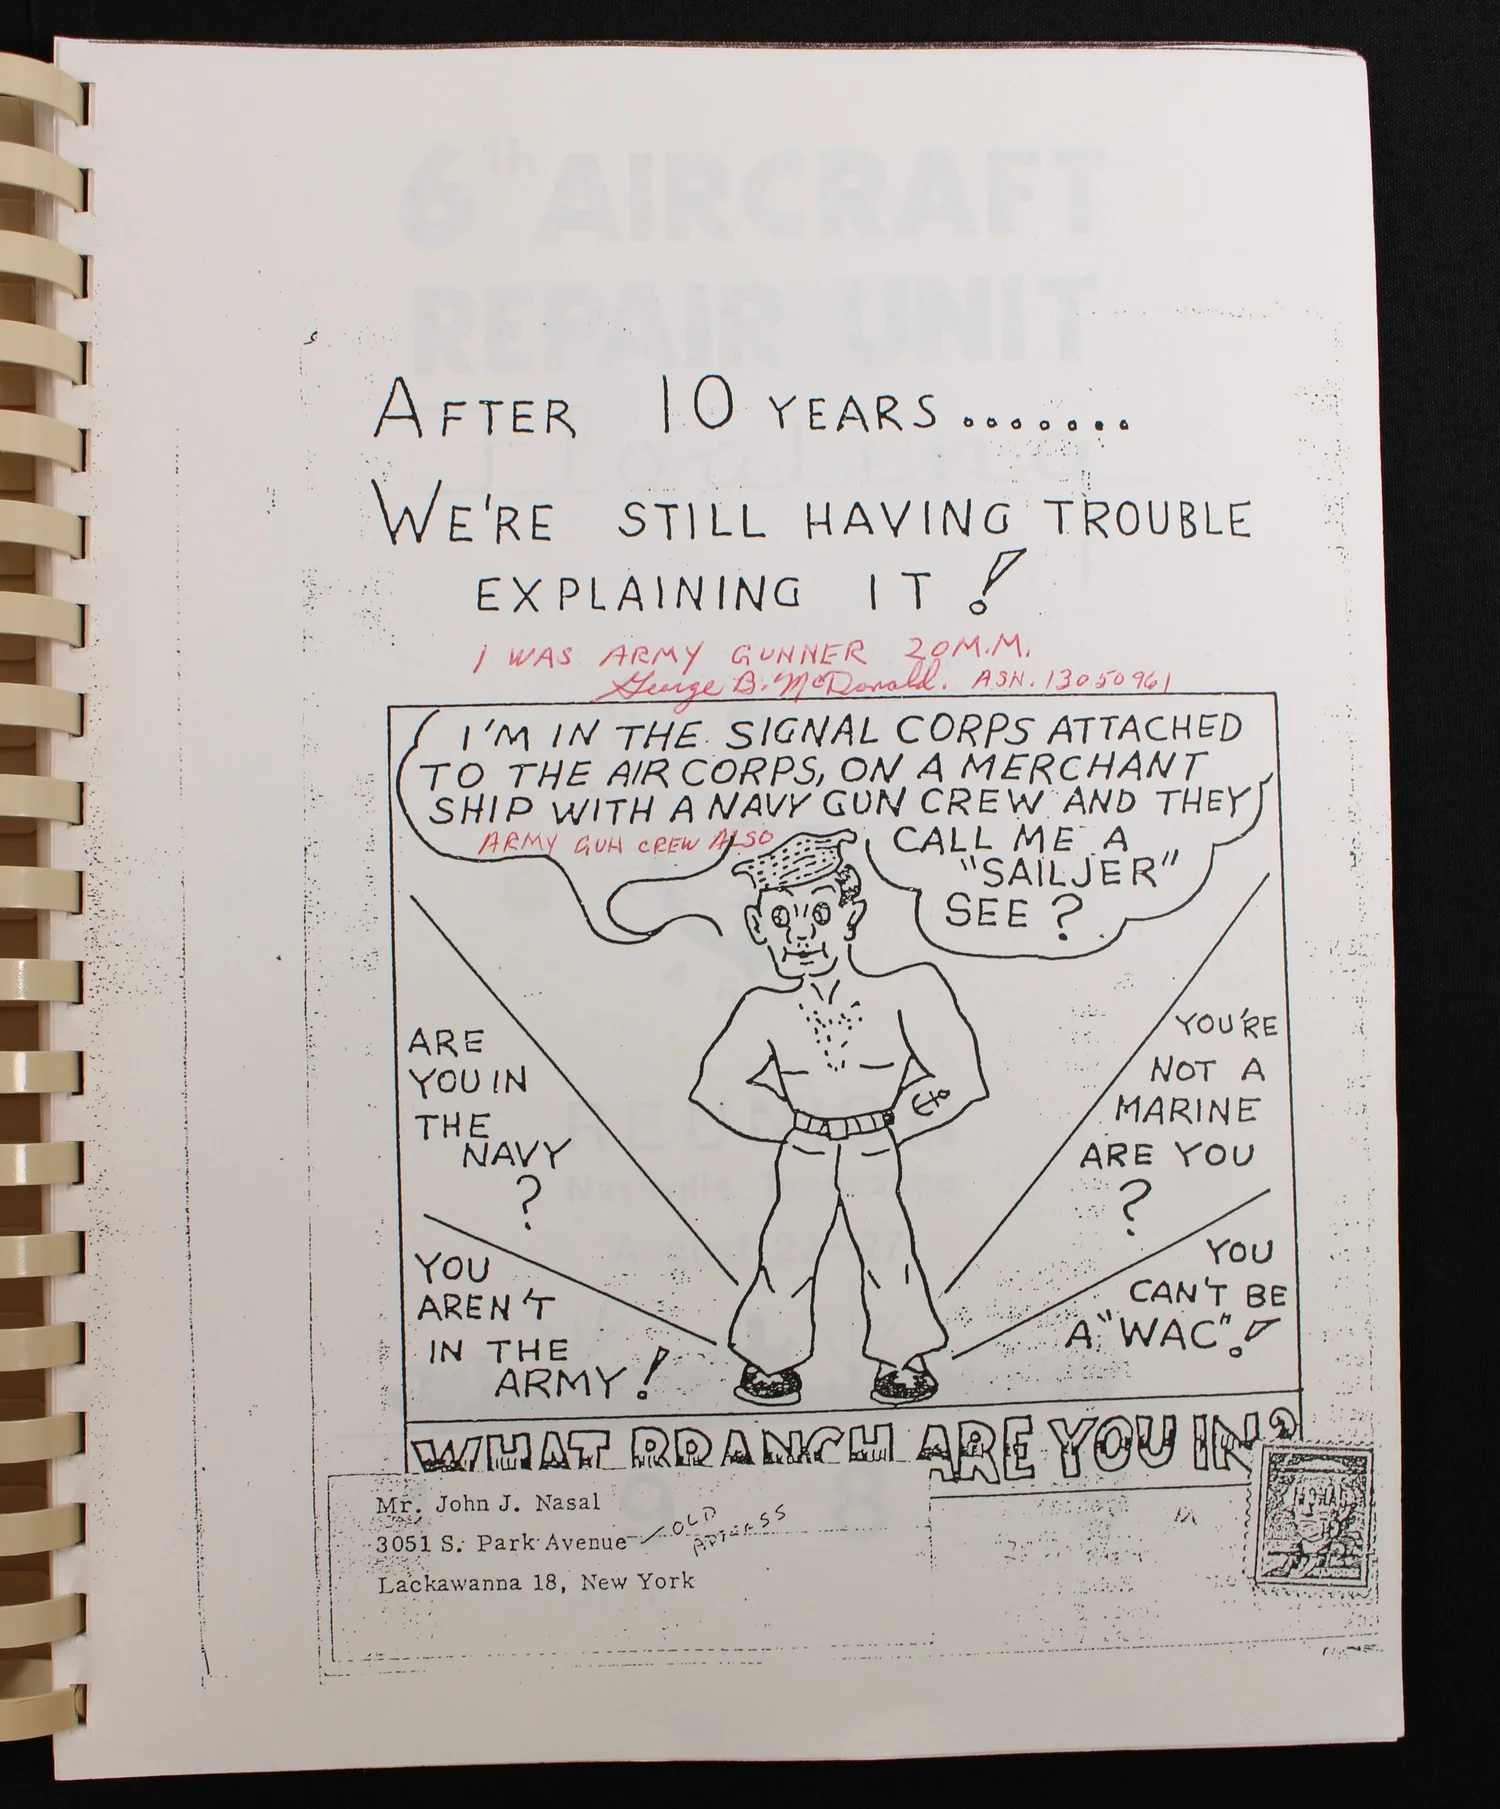 6th AIRCRAFT
REPAIR UNIT
AFTER 10 YEARS.......
WE'RE STILL HAVING TROUBLE
EXPLAINING IT!
I WAS ARMY GUNNER 20M.M.
George B. McDonald. ASN. 13050961
I'M IN THE SIGNAL CORPS ATTACHED
TO THE AIR CORPS, ON A MERCHANT
SHIP WITH A NAVY GUN CREW AND THEY
ARMY GUN CREW ALSO
CALL ME A
"SAILJER"
SEE?
ARE
YOU IN
THE
NAVY
?
YOU
AREN'T
IN THE
ARMY!
YOU'RE
NOT A
MARINE
ARE YOU
?
YOU
CAN'T BE
A "WAC"!
WHAT BRANCH ARE YOU IN?
Mr. John J. Nasal
3051 S. Park Avenue - OLD ADDRESS
Lackawanna 18, New York
REUNION
Nashville, Tennessee